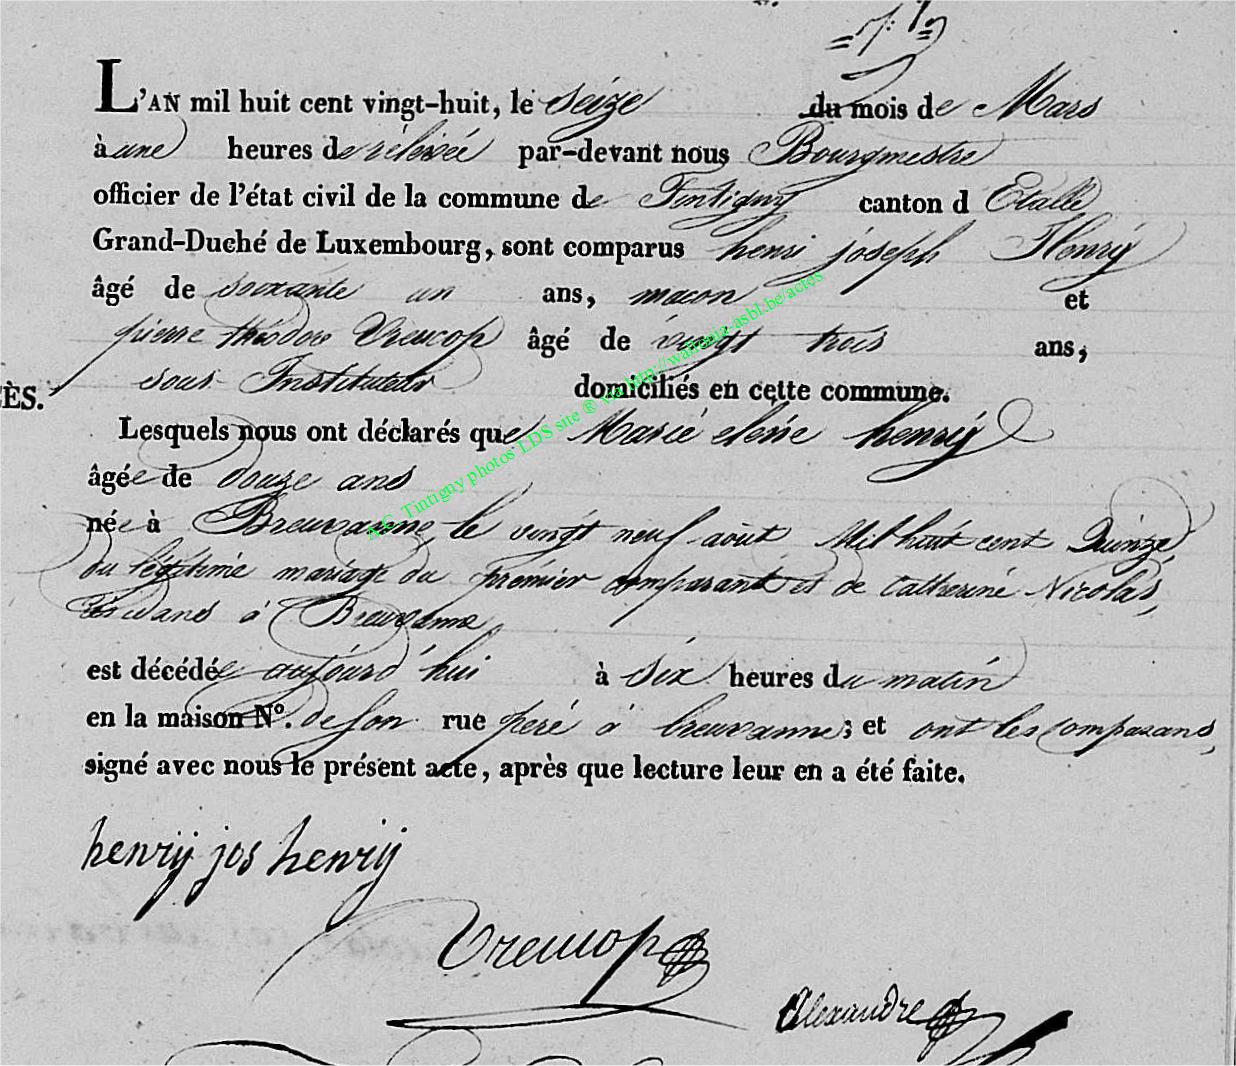 = 7. =
L'AN mil huit cent vingt-huit, le seize du mois de Mars
à une heures de rélévée par-devant nous Bourgmestre
officier de l'état civil de la commune de Tintigny canton d Etalle
Grand-Duché de Luxembourg, sont comparus henri joseph Henrÿ
âgé de soixante un ans, maçon et
pierre théodore Ureucop âgé de vingt trois ans,
sous Instituteur domiciliés en cette commune.
ÈS.
Lesquels nous ont déclarés que Marié henrÿ
âgée de douze ans
née à Breuvanne le vingt neuf août Mil huit cent Quinze
du légitimé mariage du prémier comparant et de Catheriné Nicolas,
à Breuvanne
est décédée aujourd'hui à six heures du matin
en la maison N°. de son rue peré à breuvanne; et ont les comparans,
signé avec nous le présent acte, après que lecture leur en a été faite.
A.C. Tintigny photos LDS site ® via http://wallonia-asbl.be/actes
henrij jos henrij
Ureucop
Alexandre